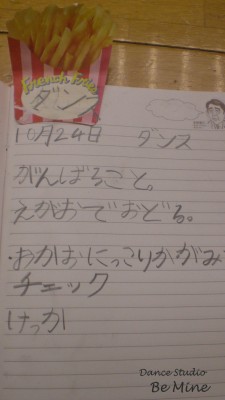 French Fries
ダンス
10月24日 ダンス
がんばること。
えがおでおどる。
・おかおにっこりかがみ
チェック
けっか
Dance Studio
Be Mine